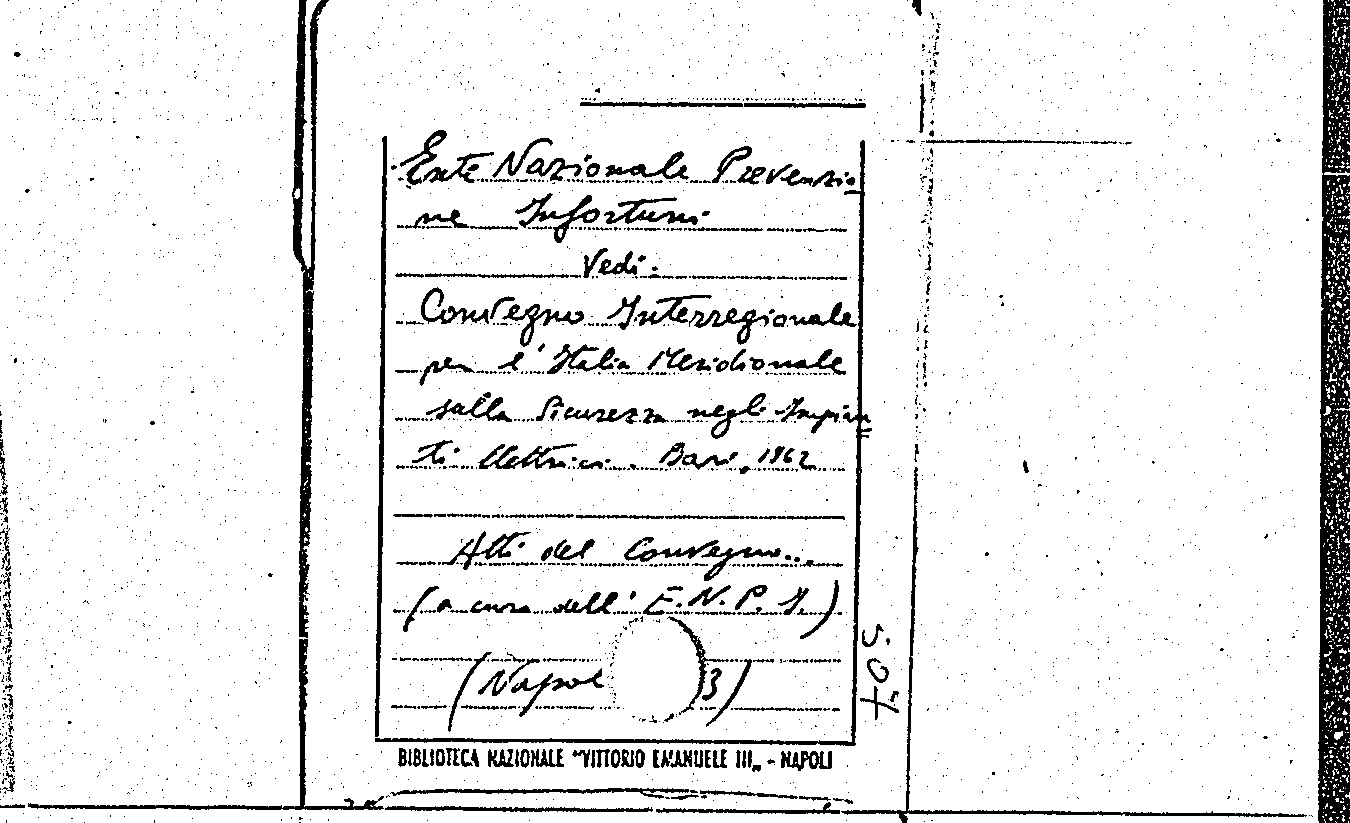 Ente Nazionale Prevenzio
ne Infortuni
Vedi:
Convegno Interregionale
per l'Italia Meridionale
sulla Sicurezza negli Impian
ti Elettrici. Bari, 1962
Atti del Convegno...
(a cura dell' E.N.P.I.)
(Napol 3)
507
BIBLIOTECA NAZIONALE "VITTORIO EMANUELE III„ - NAPOLI